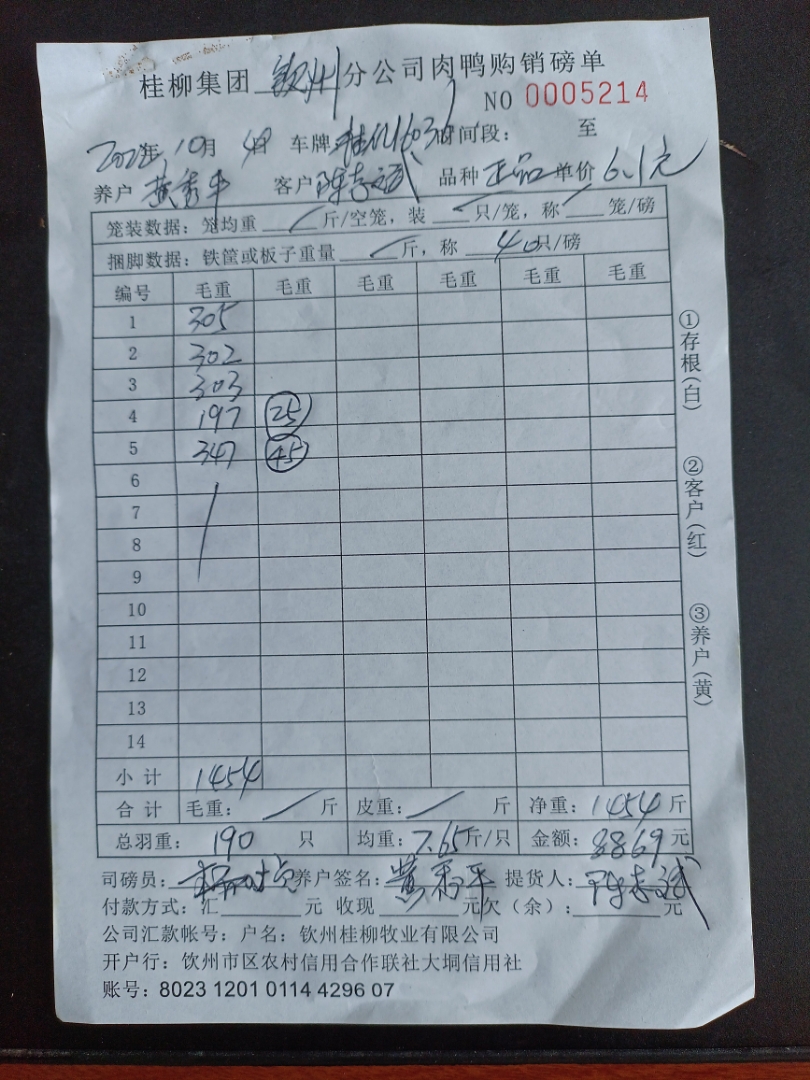 桂柳集团 钦州 分公司肉鸭购销磅单
NO 0005214
年 10月 4日 车牌 时间段： 至
养户 黄秀平 客户 陈李斌 品种 正品 单价 6.1元
笼装数据：笼均重 斤/空笼，装 只/笼，称 笼/磅
捆脚数据：铁筐或板子重量 斤，称 40只/磅
编号 毛重 毛重 毛重 毛重 毛重 毛重
1 305
2 302
3 303
4 197 25
5 347 45
6
7
8
9
10
11
12
13
14
小计 1454
合计 毛重： 斤 皮重： 斤 净重：1454斤
总羽重：190 只 均重：7.65斤/只 金额：8869元
司磅员： 养户签名：黄秀平 提货人：陈李斌
付款方式：汇 元 收现 元 欠（余）： 元
公司汇款帐号：户名：钦州桂柳牧业有限公司
开户行：饮州市区农村信用合作联社大垌信用社
账号：8023 1201 0114 4296 07
①存根(白)
②客户(红)
③养户(黄)